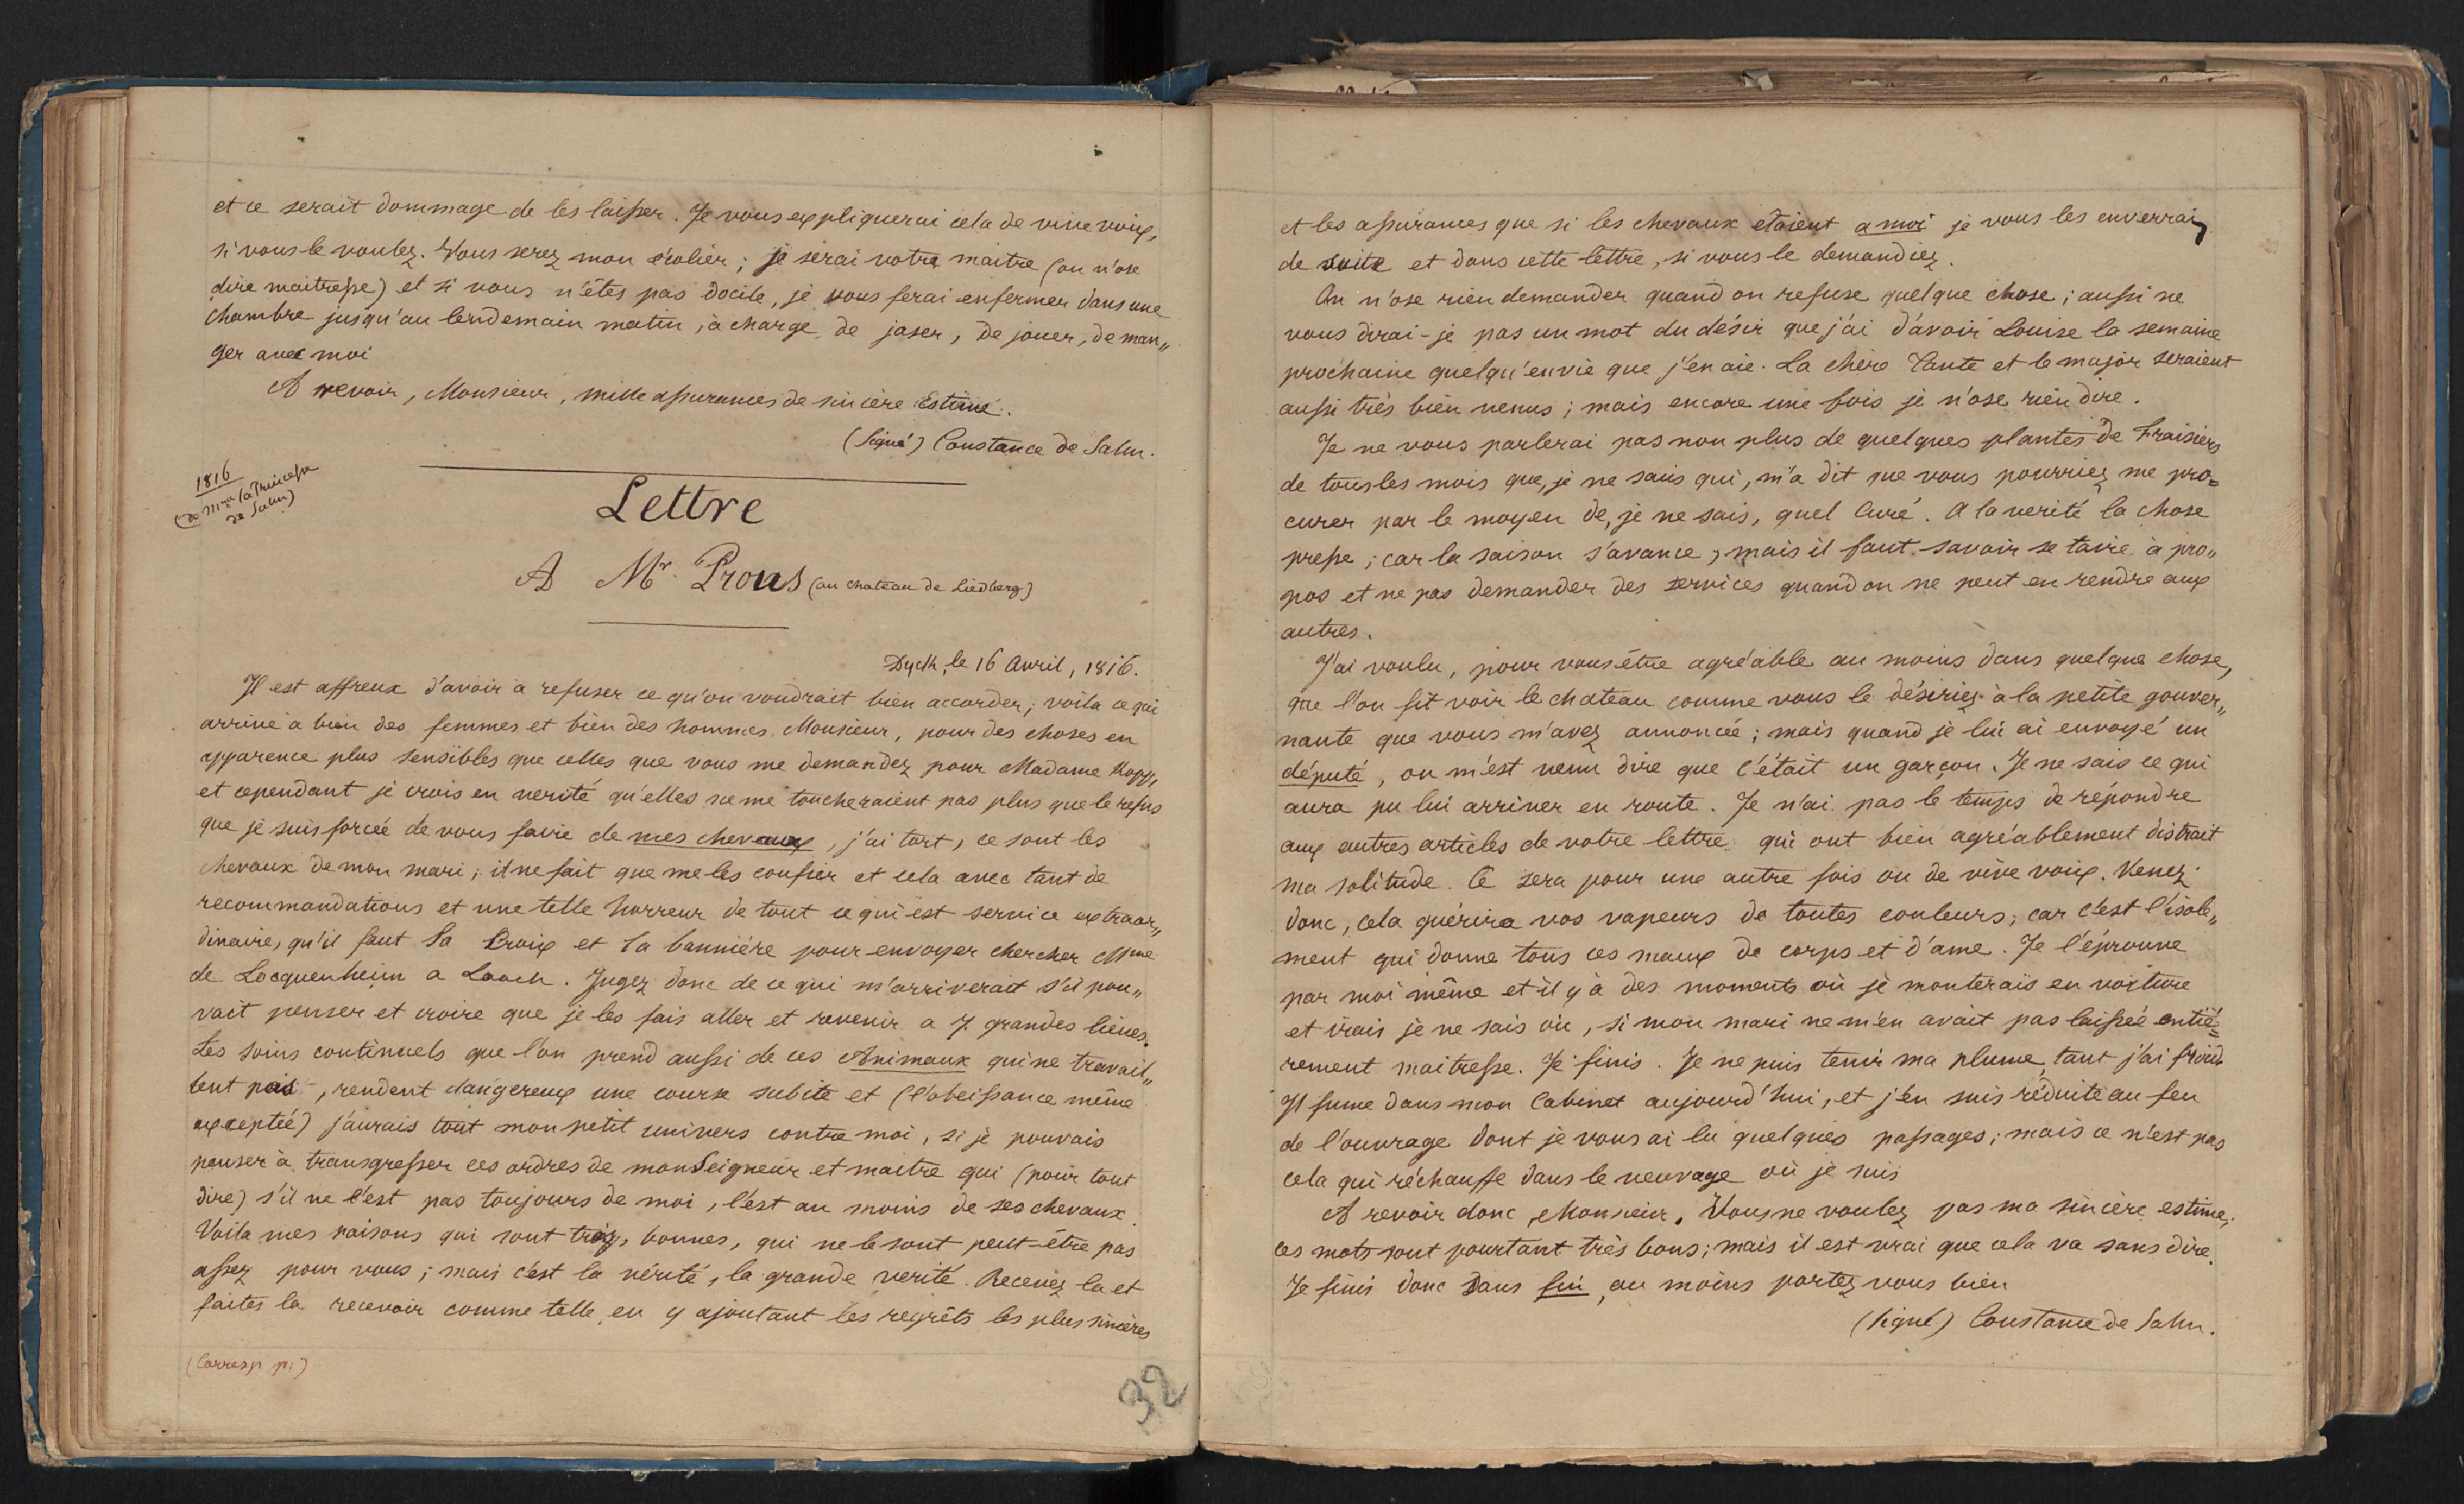 et ce serait dommage de les laisser. Je vous expliquerai cela de vive voix,
si vous le voulez. Vous serez mon écolier ; je serai votre maitre (on n'ose
dire maitresse) et si vous n'êtes pas docile, je vous ferai enfermer dans une
chambre jusqu'au lendemain matin, à charge de jaser, de jouer, de man„
ger avec moi
A revoir, Monsieur, mille assurances de sincère Estime.
(Signé) Constance de Salm.
1816
(de Mme la Princesse
de Salm)
Lettre
A Mr. Prous (au chateau de Liedberg)
Dyck, le 16 Avril, 1816.
Il est affreux d'avoir à refuser ce qu'on voudrait bien accorder ; voila ce qui
arrive à bien des femmes et bien des hommes, Monsieur, pour des choses en
apparence plus sensibles que celles que vous me demandez pour Madame Kopp,
et cependant je crois en verité qu'elles ne me toucheraient pas plus que le refus
que je suis forcée de vous faire de mes chevaux, j'ai tort, ce sont les
chevaux de mon mari ; il ne fait que me les confier et cela avec tant de
recommandations et une telle horreur de tout ce qui est service extraor„
dinaire, qu'il faut la Croix et la bannière pour envoyer chercher Mme
de Locquenheim a Laach. Jugez donc de ce qui m'arriverait s'il pou„
vait penser et croire que je les fais aller et revenir a 7 grandes lieues.
Les soins continuels que l'on prend aussi de ces Animaux qui ne travail„
lent pas, rendent dangereux une course subite et (l'obeissance même
exceptée) j'aurais tout mon petit univers contre moi, si je pouvais
penser à transgresser ces ordres de mon Seigneur et maitre qui (pour tout
dire) s'il ne l'est pas toujours de moi, l'est au moins de ses chevaux.
Voila mes raisons qui sont trois, bonnes, qui ne le sont peut-être pas
assez pour vous ; mais c'est la vérité, la grande verité. Recevez la et
faites la recevoir comme telle, en y ajoutant les regrêts les plus sincères
(Corresp. p:)
32
et les assurances que si les chevaux etaient a moi je vous les enverrais
de suite et dans cette lettre, si vous le demandiez.
On n'ose rien demander quand on refuse quelque chose ; aussi ne
vous dirai-je pas un mot du désir que j'ai d'avoir Louise la semaine
prochaine quelqu'envie que j'en aie. La chère Tante et le major seraient
aussi très bien venus ; mais encore une fois je n'ose rien dire.
Je ne vous parlerai pas non plus de quelques plantes de Fraisiers
de tous les mois que, je ne sais qui, m'a dit que vous pourriez me pro=
curer par le moyen de, je ne sais, quel Curé. A la verité la chose
presse ; car la saison s'avance, mais il faut savoir se taire à pro„
pos et ne pas demander des services quand on ne peut en rendre aux
autres.
J'ai voulu, pour vous être agréable au moins dans quelque chose,
que l'on fit voir le chateau comme vous le désiriez à la petite gouver„
nante que vous m'avez annoncée ; mais quand je lui ai envoyé un
député, on m'est venu dire que c'était un garçon. Je ne sais ce qui
aura pu lui arriver en route. Je n'ai pas le temps de répondre
aux autres articles de votre lettre qui ont bien agréablement distrait
ma solitude. Ce sera pour une autre fois ou de vive voix. Venez
donc, cela quérira vos vapeurs de toutes couleurs ; car c'est l'isole„
ment qui donne tous ces maux de corps et d'ame. Je l'éprouve
par moi même et il y à des moments où je monterais en voiture
et irais je ne sais où, si mon mari ne m'en avait pas laissée entiè=
rement maitresse. Je finis. Je ne puis tenir ma plume, tant j'ai froid.
Il fume dans mon Cabinet aujourd'hui, et j'en suis réduite au feu
de l'ouvrage dont je vous ai lu quelques passages ; mais ce n'est pas
cela qui réchauffe dans le veuvage où je suis
A revoir donc, Monsieur. Vous ne voulez pas ma sincère estime,
ces mots sont pourtant très bons ; mais il est vrai que cela va sans dire.
Je finis donc sans fin, au moins portez vous bien
(signé) Constance de Salm.